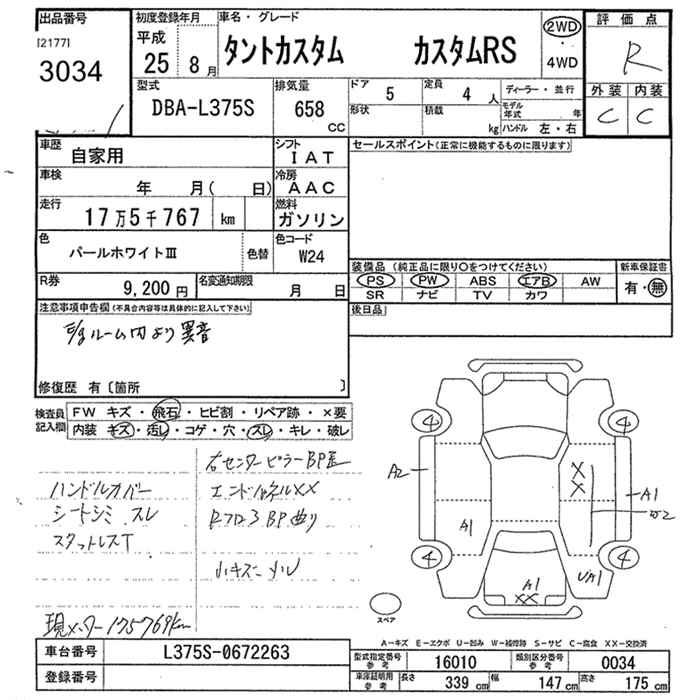 出品番号
[2177]
3034
初度登録年月
平成
25 8月
車名・グレード
タントカスタム カスタムRS
2WD
4WD
評価点
R
外装 内装
C C
型式
DBA-L375S
排気量
658
CC
ドア 5
定員 4 人
形状
積載 kg
ディーラー・並行
モデル年式 年
ハンドル 左・右
車歴 自家用
シフト IAT
セールスポイント(正常に機能するものに限ります)
車検 年 月( 日)
冷房 AAC
走行 17万5千767 km
燃料 ガソリン
色 パールホワイトⅢ 色替
色コード W24
装備品(純正品に限り○をつけてください)
新車保証書
PS PW ABS エアB AW
有・無
SR ナビ TV カワ
R券 9,200円
名変通知期限 月 日
後日品
注意事項申告欄(不具合内容等は具体的に記入して下さい)
E/gルーム内より異音
修復歴 有〔箇所 〕
検査員記入欄
FW キズ・飛石・ヒビ割・リペア跡・×要
内装 キズ・汚し・コゲ・穴・スレ・キレ・破レ
右センターピラーBP歪
ハンドルカバー
エンドパネルXX
シートシミ スレ
RフロアBP曲り
スタットレスT
小キズ ヘコ
現メーター175769km
4 4
A2
X
X
A1
A1
4 4
A1
XX
UA1
スペア
A－キズ E－エクボ U－凹み W－補修跡 S－サビ C－腐食 XX－交換済
車台番号 L375S-0672263
登録番号
型式指定番号 参考 16010
類別区分番号 参考 0034
車庫証明用 参考 長さ 339cm 幅 147cm 高さ 175cm